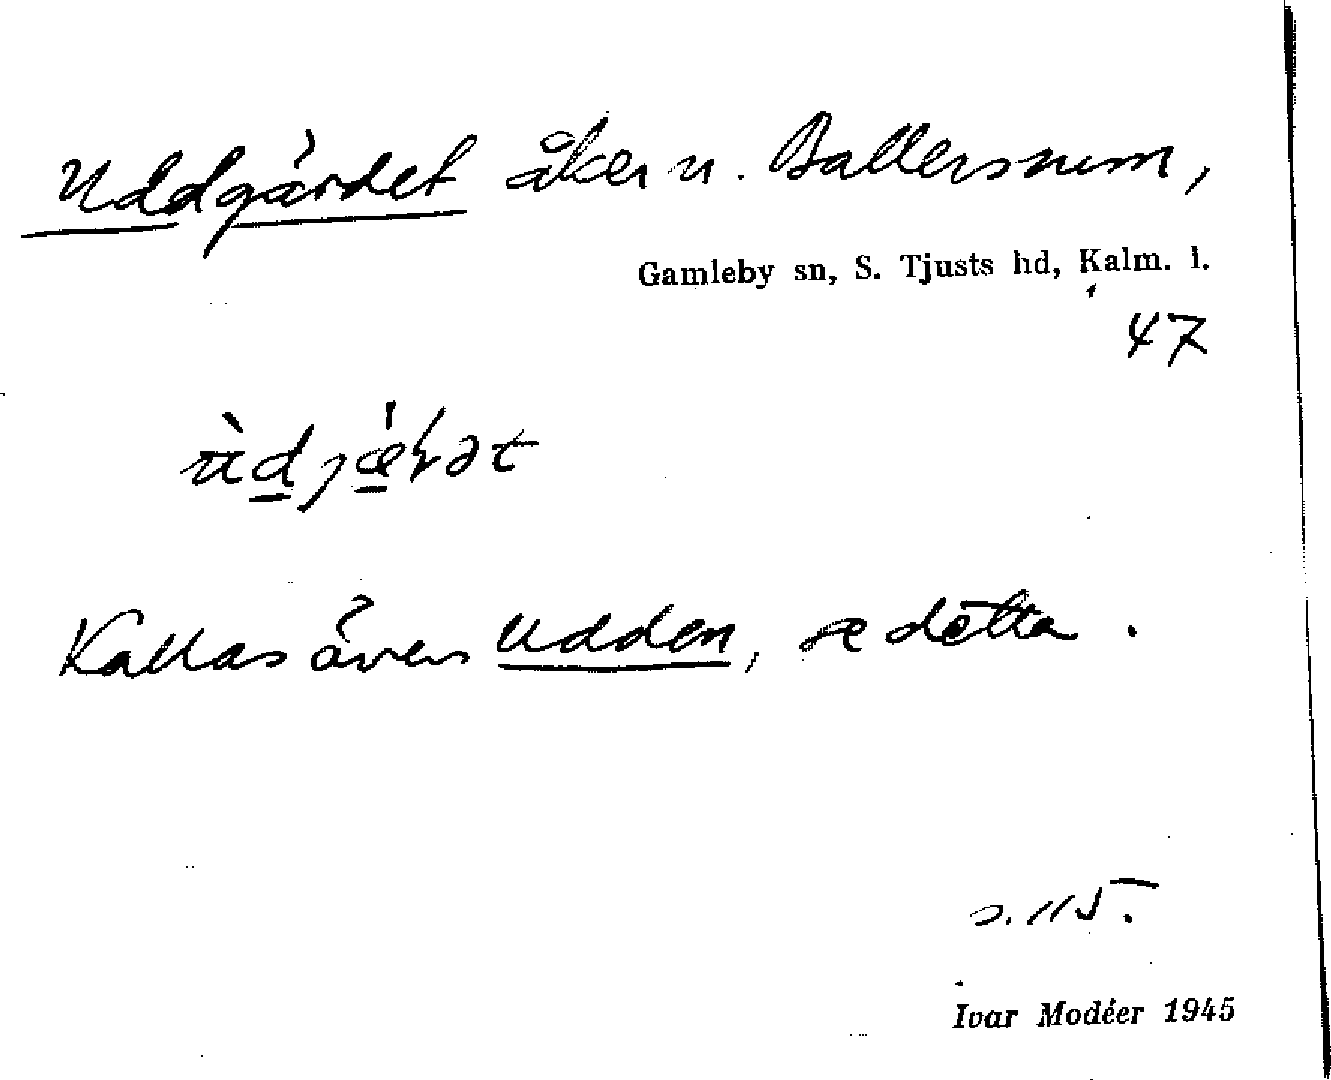 Uddgärdet åker u. Ballersum,
Gamleby sn, S. Tjusts hd, Kalm. l.
47
Kallas även Udden, se detta.
s. 115.
Ivar Modéer 1945